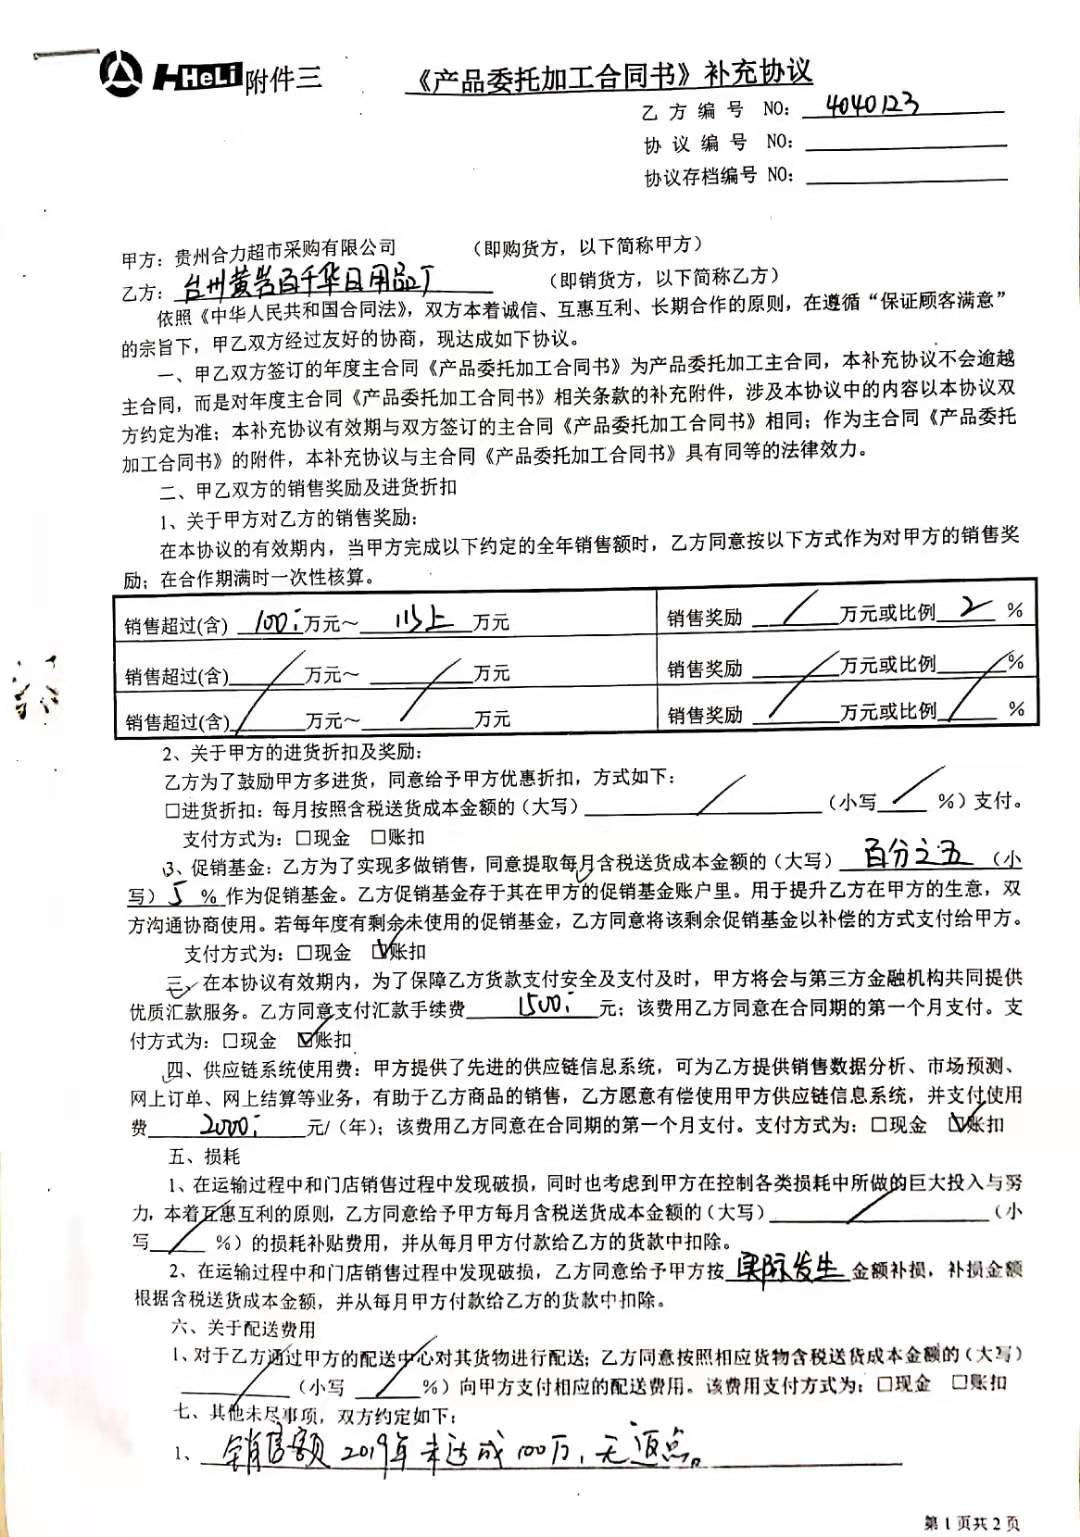 HeLi 附件三
《产品委托加工合同书》补充协议
乙方编号 NO: 4040123
协议编号 NO:
协议存档编号 NO:
甲方：贵州合力超市采购有限公司 （即购货方，以下简称甲方）
乙方：台州黄岩百千华日用品厂 （即销货方，以下简称乙方）
依照《中华人民共和国合同法》，双方本着诚信、互惠互利、长期合作的原则，在遵循“保证顾客满意”
的宗旨下，甲乙双方经过友好的协商，现达成如下协议。
一、甲乙双方签订的年度主合同《产品委托加工合同书》为产品委托加工主合同，本补充协议不会逾越
主合同，而是对年度主合同《产品委托加工合同书》相关条款的补充附件，涉及本协议中的内容以本协议双
方约定为准；本补充协议有效期与双方签订的主合同《产品委托加工合同书》相同；作为主合同《产品委托
加工合同书》的附件，本补充协议与主合同《产品委托加工合同书》具有同等的法律效力。
二、甲乙双方的销售奖励及进货折扣
1、关于甲方对乙方的销售奖励：
在本协议的有效期内，当甲方完成以下约定的全年销售额时，乙方同意按以下方式作为对甲方的销售奖
励；在合作期满时一次性核算。
销售超过(含) 100 万元～ 以上 万元 销售奖励 / 万元或比例 2 %
销售超过(含) / 万元～ / 万元 销售奖励 / 万元或比例 / %
销售超过(含) / 万元～ / 万元 销售奖励 / 万元或比例 / %
2、关于甲方的进货折扣及奖励：
乙方为了鼓励甲方多进货，同意给予甲方优惠折扣，方式如下：
□进货折扣：每月按照含税送货成本金额的（大写） / （小写 / %）支付。
支付方式为：□现金 □账扣
3、促销基金：乙方为了实现多做销售，同意提取每月含税送货成本金额的（大写） 百分之五 （小
写）5 %作为促销基金。乙方促销基金存于其在甲方的促销基金账户里。用于提升乙方在甲方的生意，双
方沟通协商使用。若每年度有剩余未使用的促销基金，乙方同意将该剩余促销基金以补偿的方式支付给甲方。
支付方式为：□现金 ☑账扣
三、在本协议有效期内，为了保障乙方货款支付安全及支付及时，甲方将会与第三方金融机构共同提供
优质汇款服务。乙方同意支付汇款手续费 1500 元；该费用乙方同意在合同期的第一个月支付。支
付方式为：□现金 ☑账扣
四、供应链系统使用费：甲方提供了先进的供应链信息系统，可为乙方提供销售数据分析、市场预测、
网上订单、网上结算等业务，有助于乙方商品的销售，乙方愿意有偿使用甲方供应链信息系统，并支付使用
费 2000 元/（年）；该费用乙方同意在合同期的第一个月支付。支付方式为：□现金 ☑账扣
五、损耗
1、在运输过程中和门店销售过程中发现破损，同时也考虑到甲方在控制各类损耗中所做的巨大投入与努
力，本着互惠互利的原则，乙方同意给予甲方每月含税送货成本金额的（大写） / （小
写 / %）的损耗补贴费用，并从每月甲方付款给乙方的货款中扣除。
2、在运输过程中和门店销售过程中发现破损，乙方同意给予甲方按 实际发生 金额补损，补损金额
根据含税送货成本金额，并从每月甲方付款给乙方的货款中扣除。
六、关于配送费用
1、对于乙方通过甲方的配送中心对其货物进行配送；乙方同意按照相应货物含税送货成本金额的（大写）
/ （小写 / %）向甲方支付相应的配送费用。该费用支付方式为：□现金 □账扣
七、其他未尽事项，双方约定如下：
1、销售额2019年未达成100万，无返点。
第1页共2页